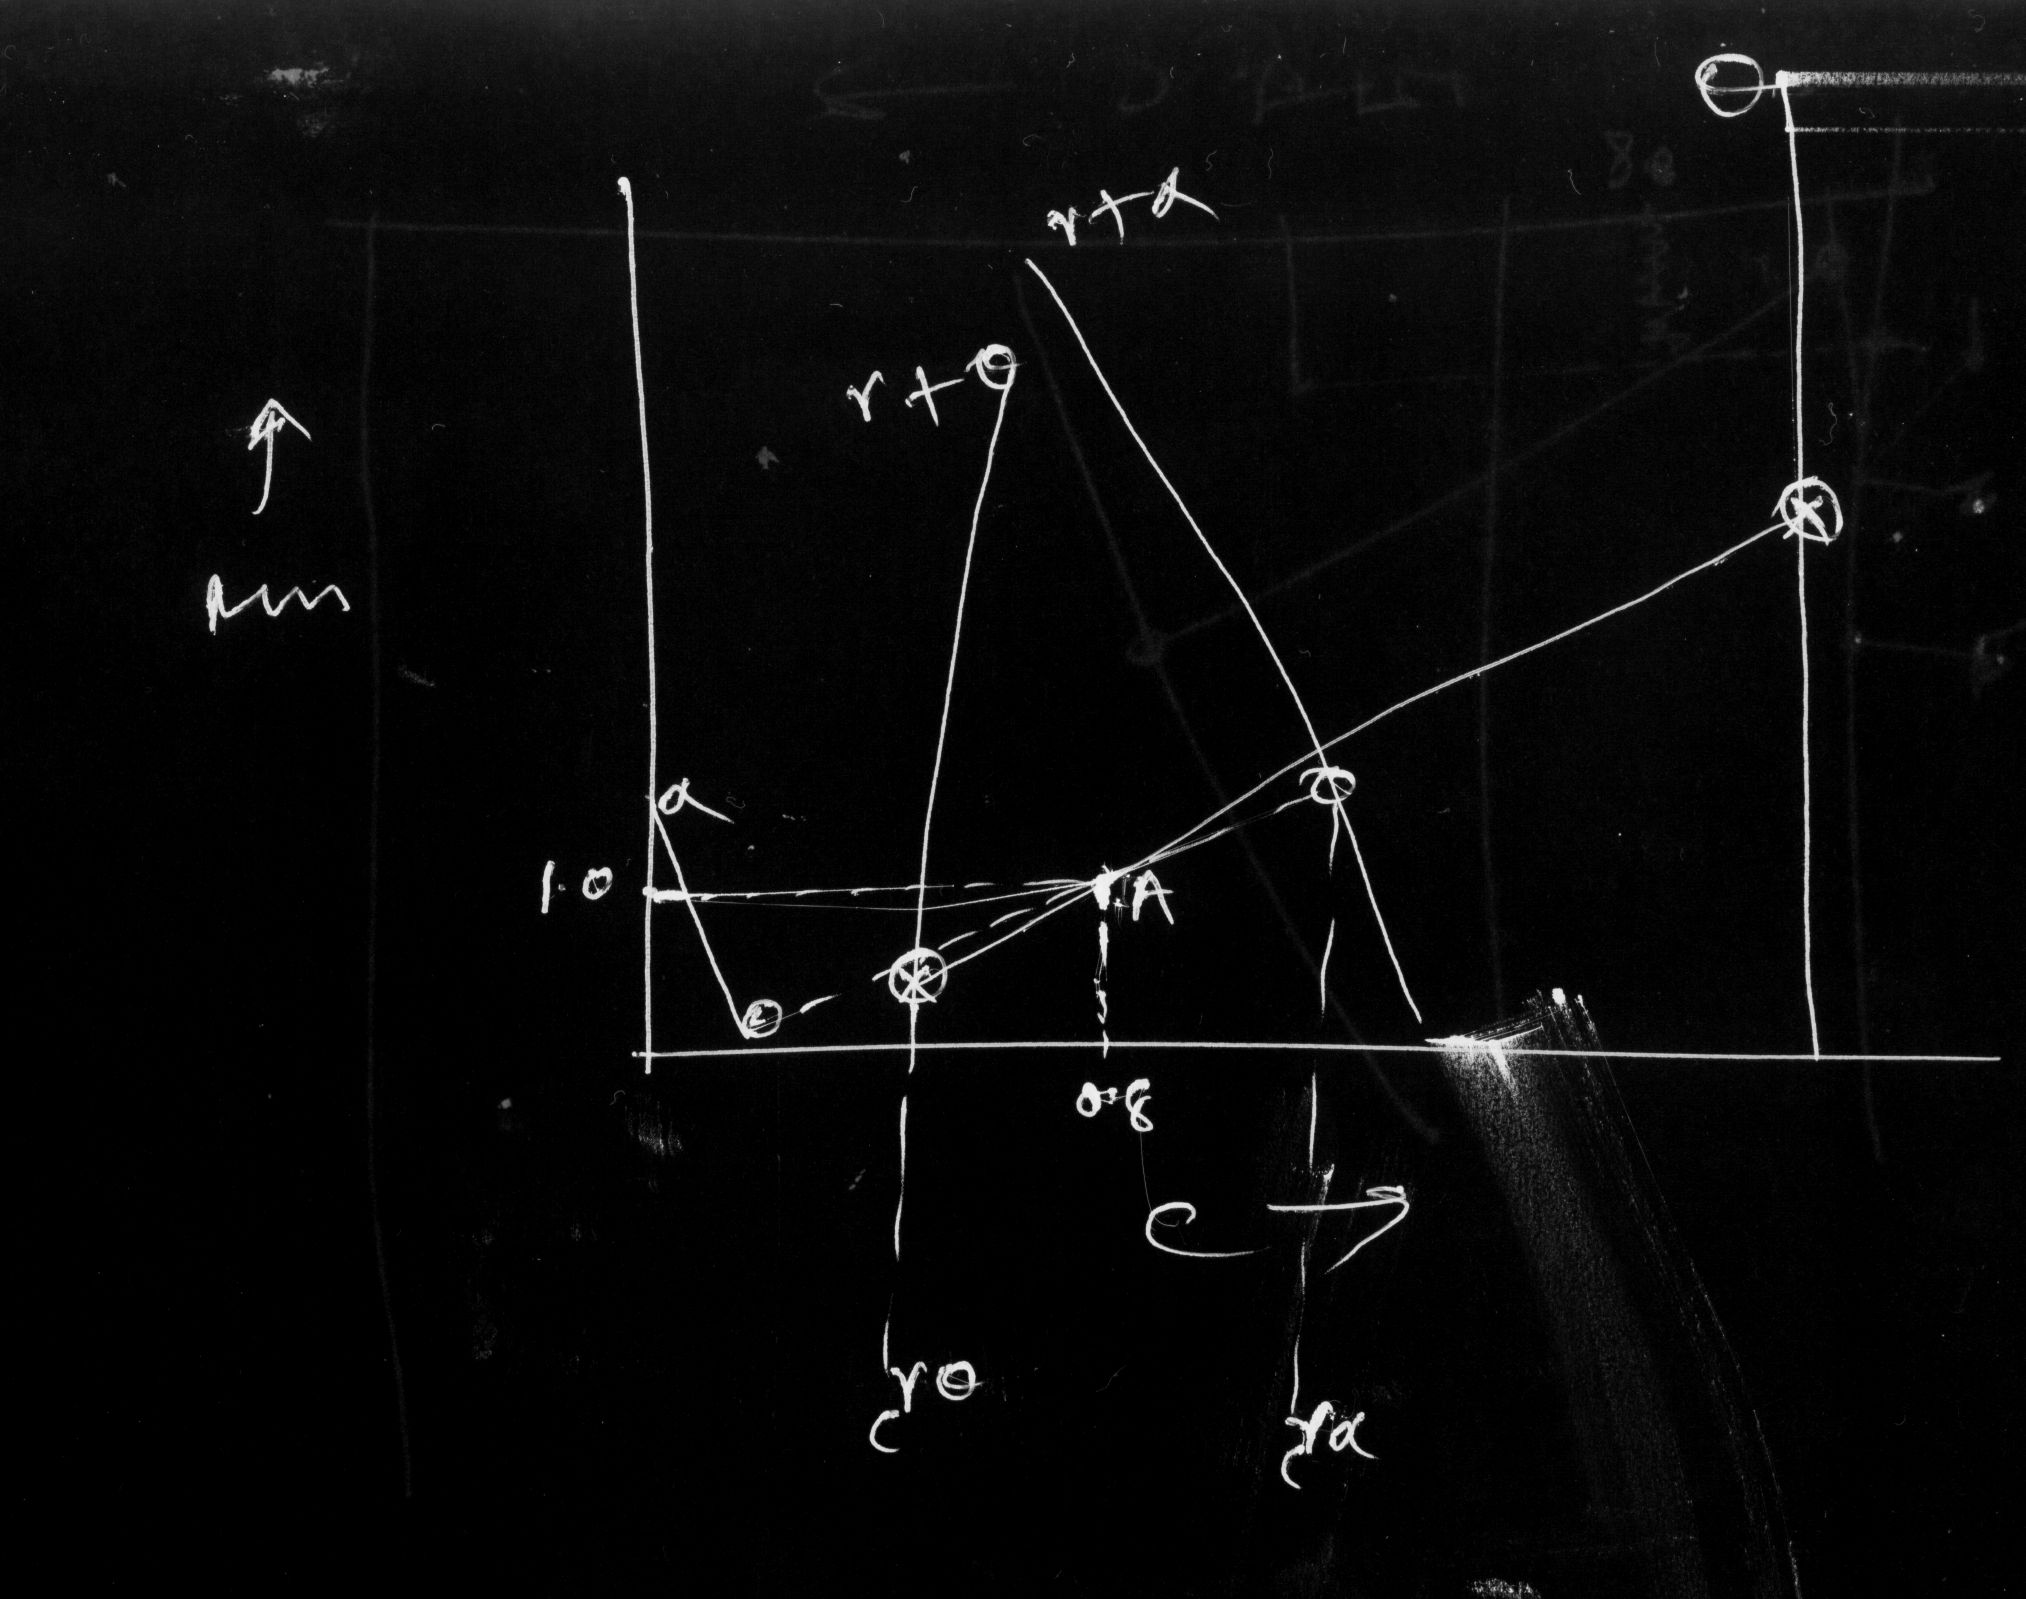 γ+α
γ+θ
↑
α
1.0
A
0.8
C →
Cγθ
Cγα